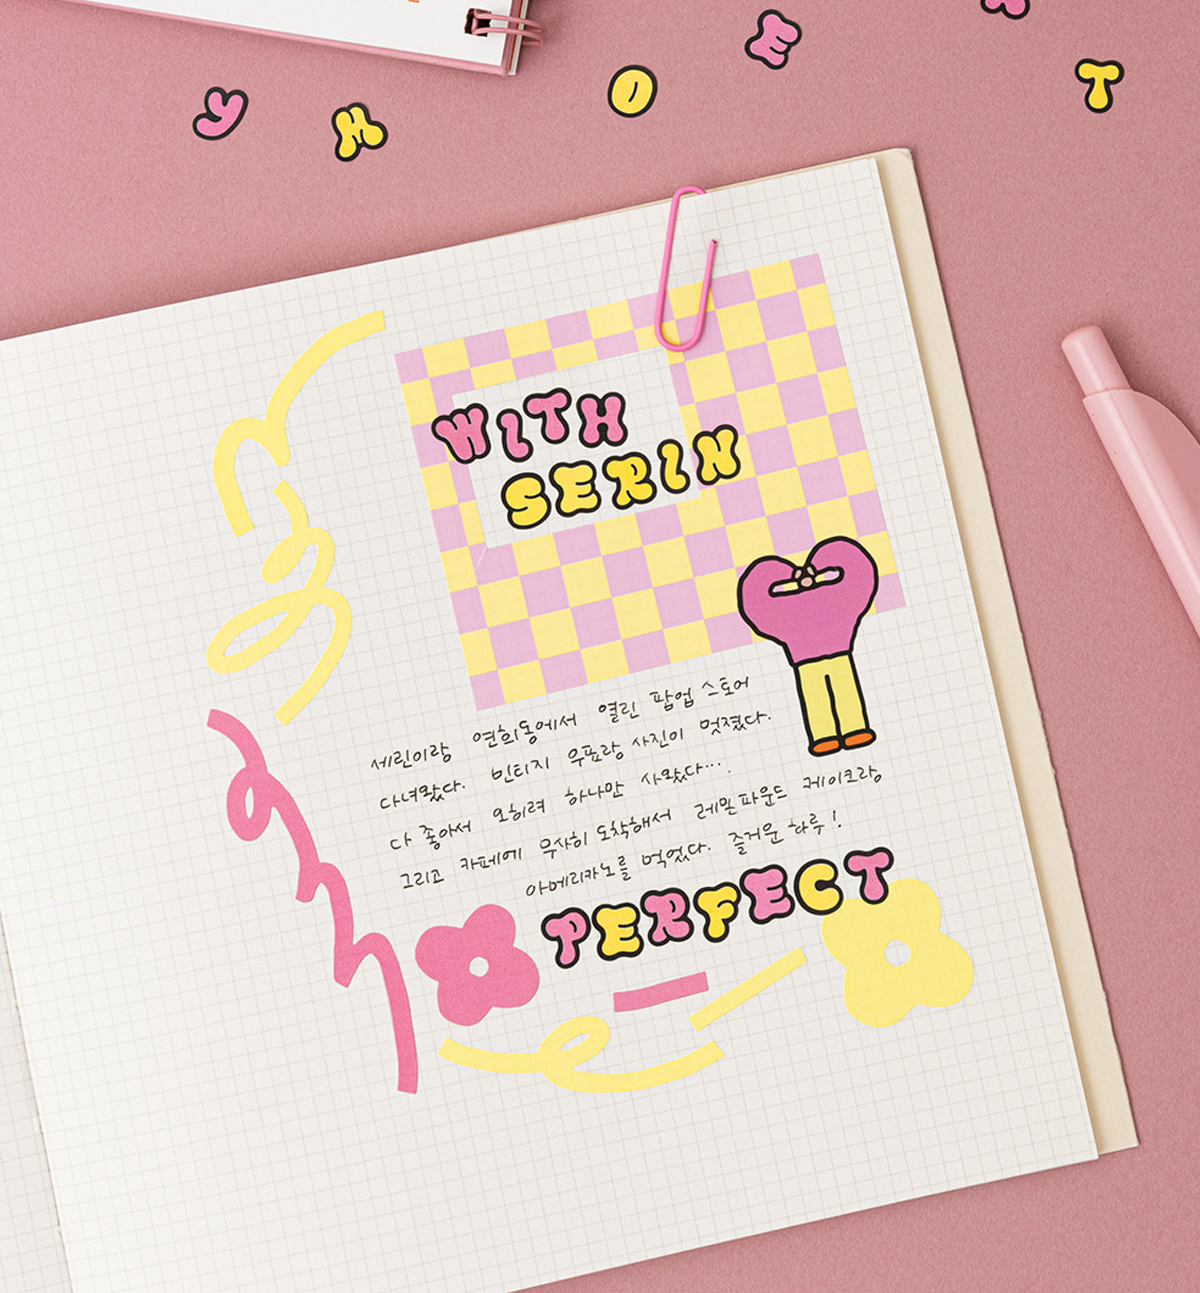 Y
H
O
E
T
WITH
SERIN
세린이랑 연희동에서 열린 팝업 스토어
다녀왔다. 빈티지 우표랑 사진이 멋졌다.
다 좋아서 오히려 하나만 사왔다···.
그리고 카페에 무사히 도착해서 레몬파운드 케이크랑
아메리카노를 먹었다. 즐거운 하루!
PERFECT